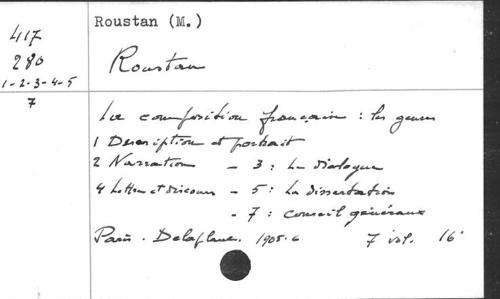 Roustan (M.)
417
280
1-2-3-4-5
7
Roustan
La composition française : les genres
1 Description et portrait
2 Narration - 3 : Le dialogue
4 Lettres et discours - 5 : La dissertation
- 7 : conseils généraux
Paris. Delaplane. 1905-6 7 vol. 16°